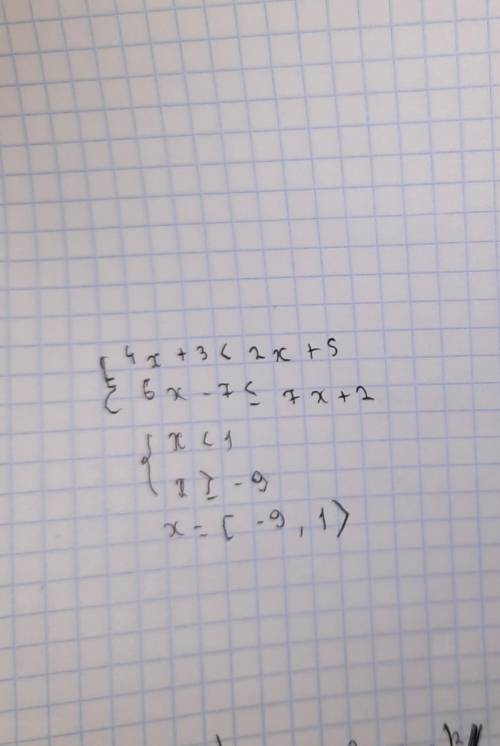 { 4x + 3 < 2x + 5
6x - 7 ≤ 7x + 2
{ x < 1
x ≥ - 9
x = [ -9 , 1 >